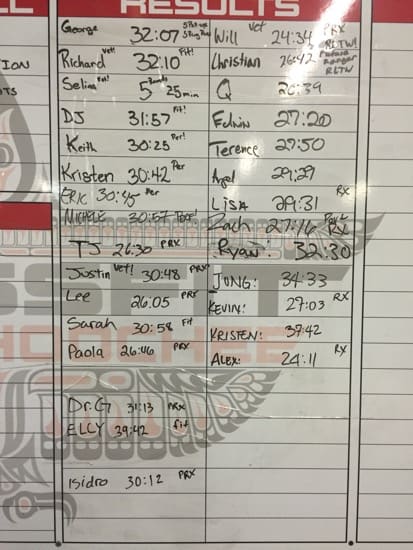 RESULTS
George 32:07
Richard Vet! 32:10 Fit!
Selina Vet! 5 Rounds 25 min
DJ 31:57 Fit!
Keith 30:25 Per!
Kristen 30:42 Per
ERIC 30:45 Per
MICHELE 30:57
TJ 26:30 PRX
Justin Vet! 30:48 PRX
Lee 26:05 PRX
Sarah 30:58 Fit
Paola 26:46 PRX
Dr.G 31:13 PRX
ELLY 39:42 fit
Isidro 30:12 PRX
Will Vet 24:34 PRX
RLTW!
Christian 26:42 Ranger
RLTW
Q 26:39
Edwin 27:20
Terence 27:50
Angel 29:29
LISA 29:31 RX
Zach 27:16 RX
Ryan: 32:30
JUNG: 34:33
KEVIN: 27:03 RX
KRISTEN: 37:42
ALEX: 24:11 RX
ION
OTS
SSFIT
HOOCHEE